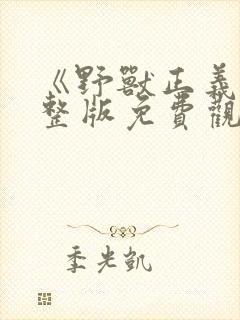 《野獸正義
整版免費觀
季光凱